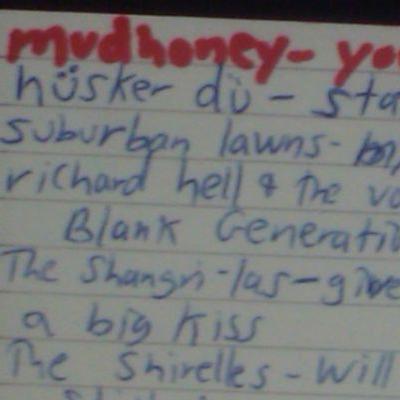 mudhoney - yo
hüsker dü - sta
suburban lawns - 
richard hell & The vo
Blank Generatio
The Shangri-las - give
a big kiss
The Shirelles - Will